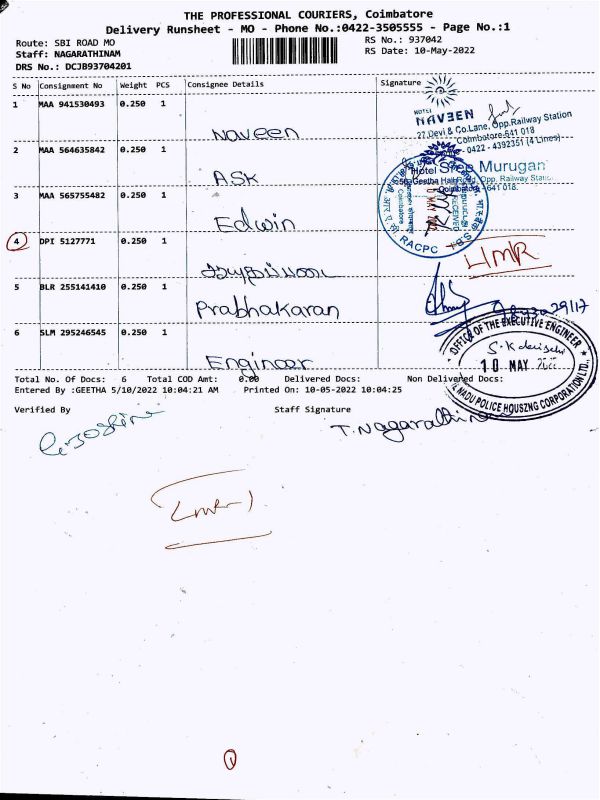 THE PROFESSIONAL COURIERS, Coimbatore
Delivery Runsheet - MO - Phone No.:0422-3505555 - Page No.:1
Route: SBI ROAD MO
RS No.: 937042
Staff: NAGARATHINAM
RS Date: 10-May-2022
DRS No.: DCJB93704201
S No Consignment No Weight PCS Consignee Details Signature
1 MAA 941530493 0.250 1 Naveen
HOTEL NAVEEN
27,Devi & Co.Lane, Opp.Railway Station
Coimbatore-641 018
0422 - 4392351 (4 Lines)
2 MAA 564635842 0.250 1 ASK
Hotel Sree Murugan
Geetha Hall Road, Opp. Railway Station
Coimbatore - 641 018.
3 MAA 565755482 0.250 1 Edwin
RECEIVED
MAY 2022
RACPC SBI
4 DPI 5127771 0.250 1
5 BLR 255141410 0.250 1 Prabhakaran
6 SLM 295246545 0.250 1 Engineer
OFFICE OF THE EXECUTIVE ENGINEER
10 MAY 2022
NADU POLICE HOUSZNG CORPORATION LTD.,
Total No. Of Docs: 6 Total COD Amt: 0.00 Delivered Docs: Non Delivered Docs:
Entered By :GEETHA 5/10/2022 10:04:21 AM Printed On: 10-05-2022 10:04:25
Verified By Staff Signature
T.Nagarathinam